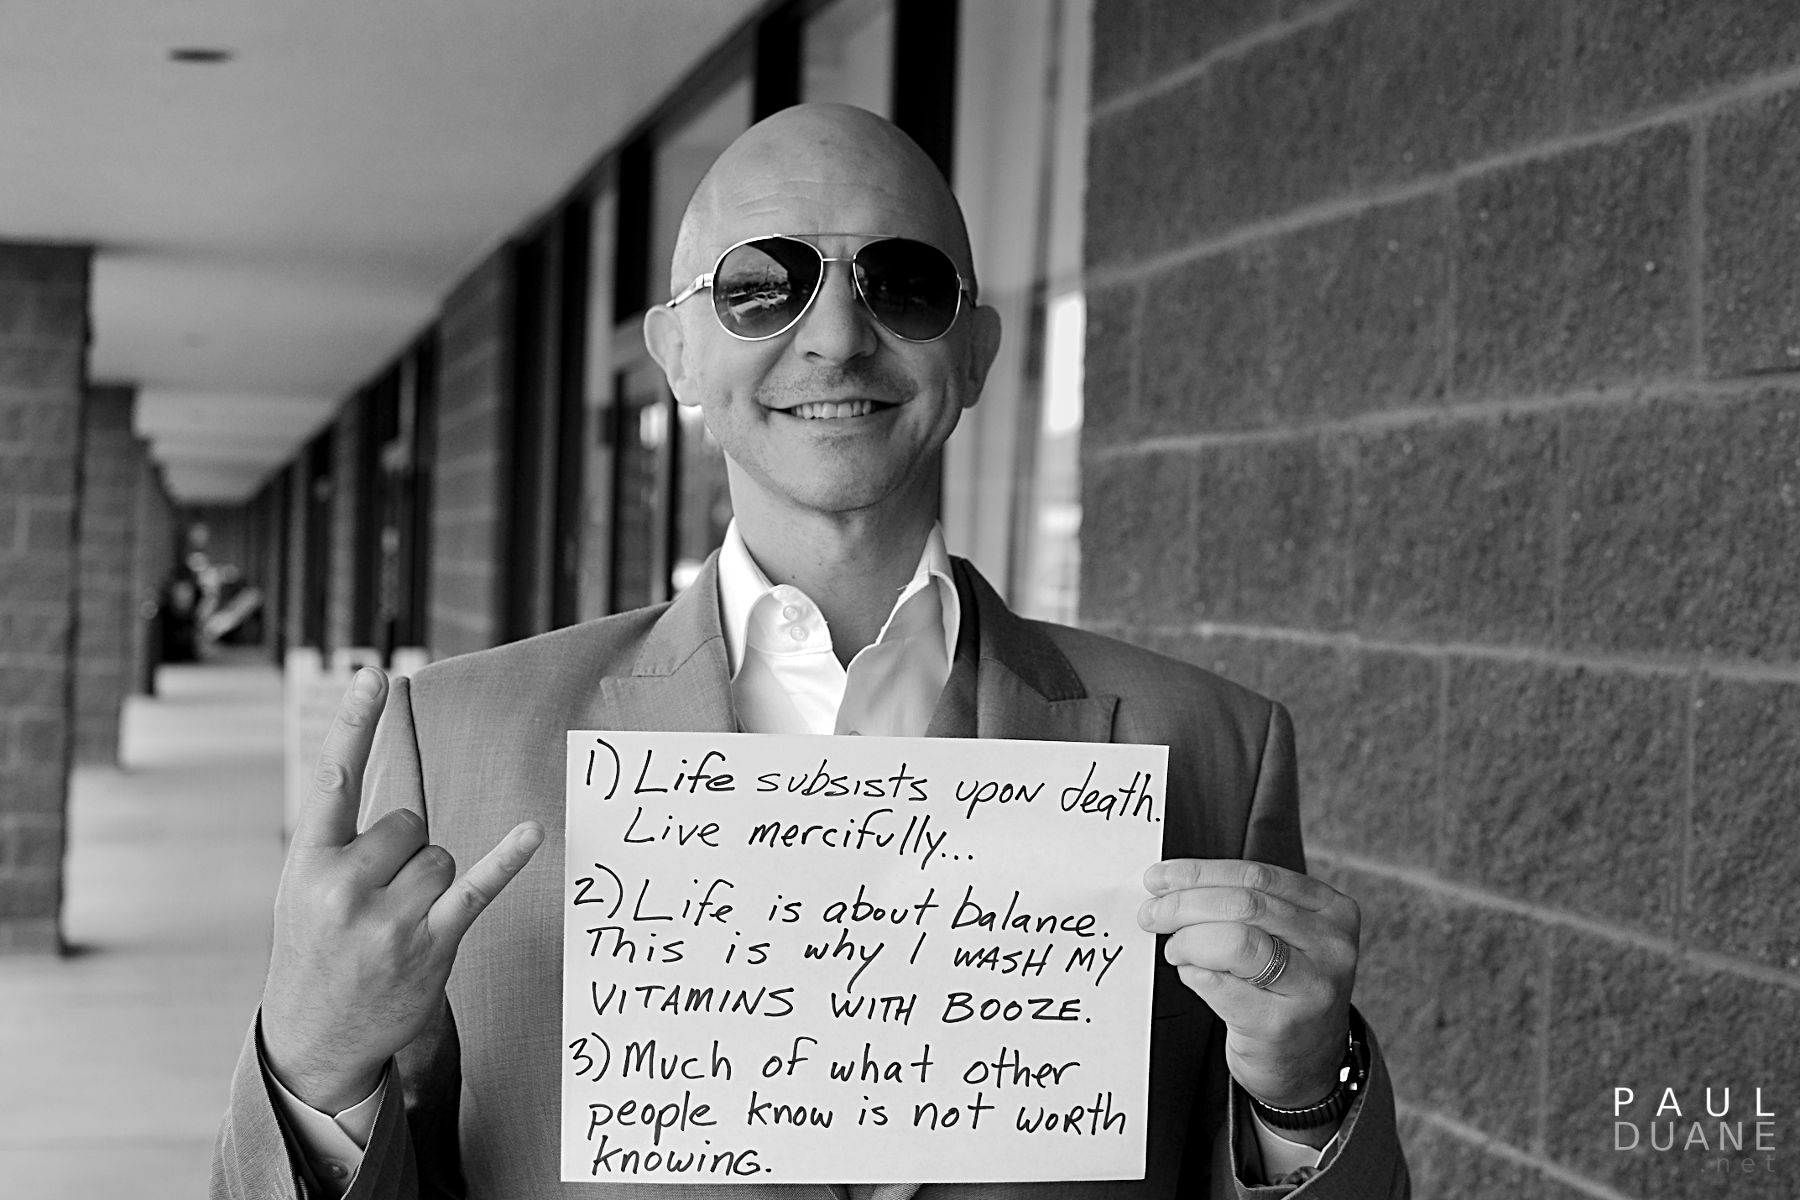 1) Life subsists upon death.
Live mercifully...
2) Life is about balance.
This is why I WASH MY
VITAMINS WITH BOOZE.
3) Much of what other
people know is not worth
knowing.
PAUL
DUANE
.net